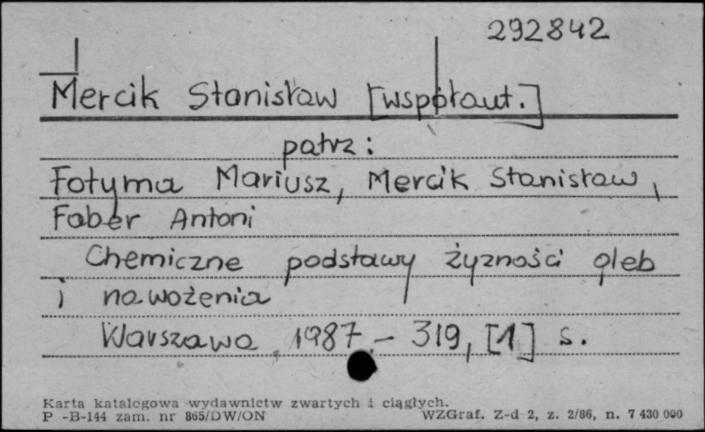 292842
Mercik Stanisław [współaut.]
patrz:
Fotyma Mariusz, Mercik Stanisław,
Faber Antoni
Chemiczne podstawy żyzności gleb
i nawożenia
Warszawa 1987 - 319, [1] s.
Karta katalogowa wydawnictw zwartych i ciągłych.
P -B-144 zam. nr 865/DW/ON WZGraf. Z-d 2, z. 2/86, n. 7 430 000